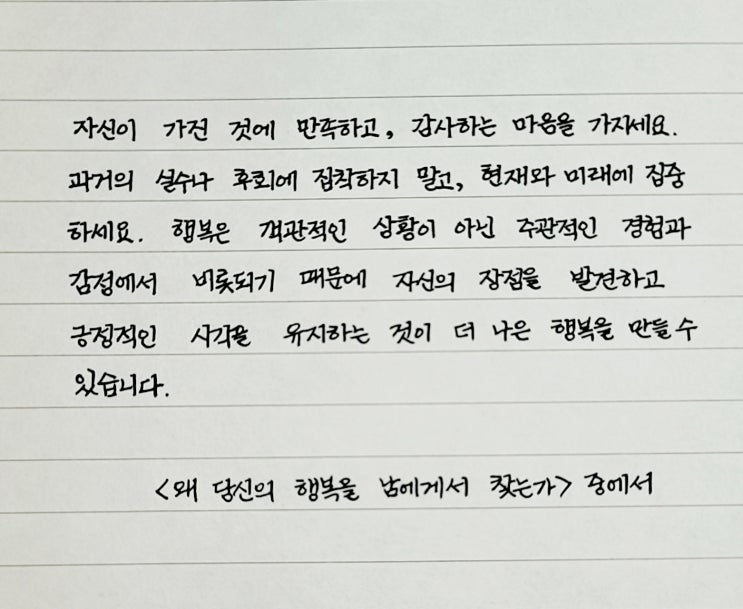 자신이 가진 것에 만족하고, 감사하는 마음을 가지세요.
과거의 실수나 후회에 집착하지 말고, 현재와 미래에 집중
하세요. 행복은 객관적인 상황이 아닌 주관적인 경험과
감정에서 비롯되기 때문에 자신의 장점을 발견하고
긍정적인 시각을 유지하는 것이 더 나은 행복을 만들 수
있습니다.
<왜 당신의 행복을 남에게서 찾는가> 중에서